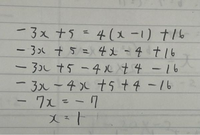 -3x + 5 = 4(x-1) + 16
-3x + 5 = 4x - 4 + 16
-3x + 5 - 4x + 4 - 16
-3x - 4x + 5 + 4 - 16
-7x = -7
x = 1